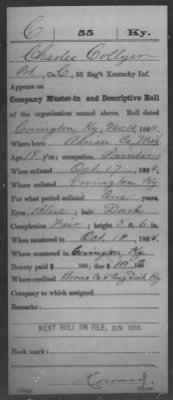 C 55 Ky.
Charles Collyer
Pvt, Co. C, 55 Reg't Kentucky Inf.
Appears on
Company Muster-in and Descriptive Roll
of the organization named above. Roll dated
Covington, Ky, Nov 14, 1864.
Where born Co,
Age 18 y'rs; occupation Farmer
When enlisted Oct 17, 1864
Where enlisted Covington Ky.
For what period enlisted One years.
Eyes Blue; hair Dark
Complexion Fair; height 5 ft. 6 in.
When mustered in Oct 18, 1864.
Where mustered in Covington Ky.
Bounty paid $ 100; due $ 100
Where credited Ky
Company to which assigned
Remarks:
NEXT ROLL ON FILE, JUN 1865
Book mark:
Howard